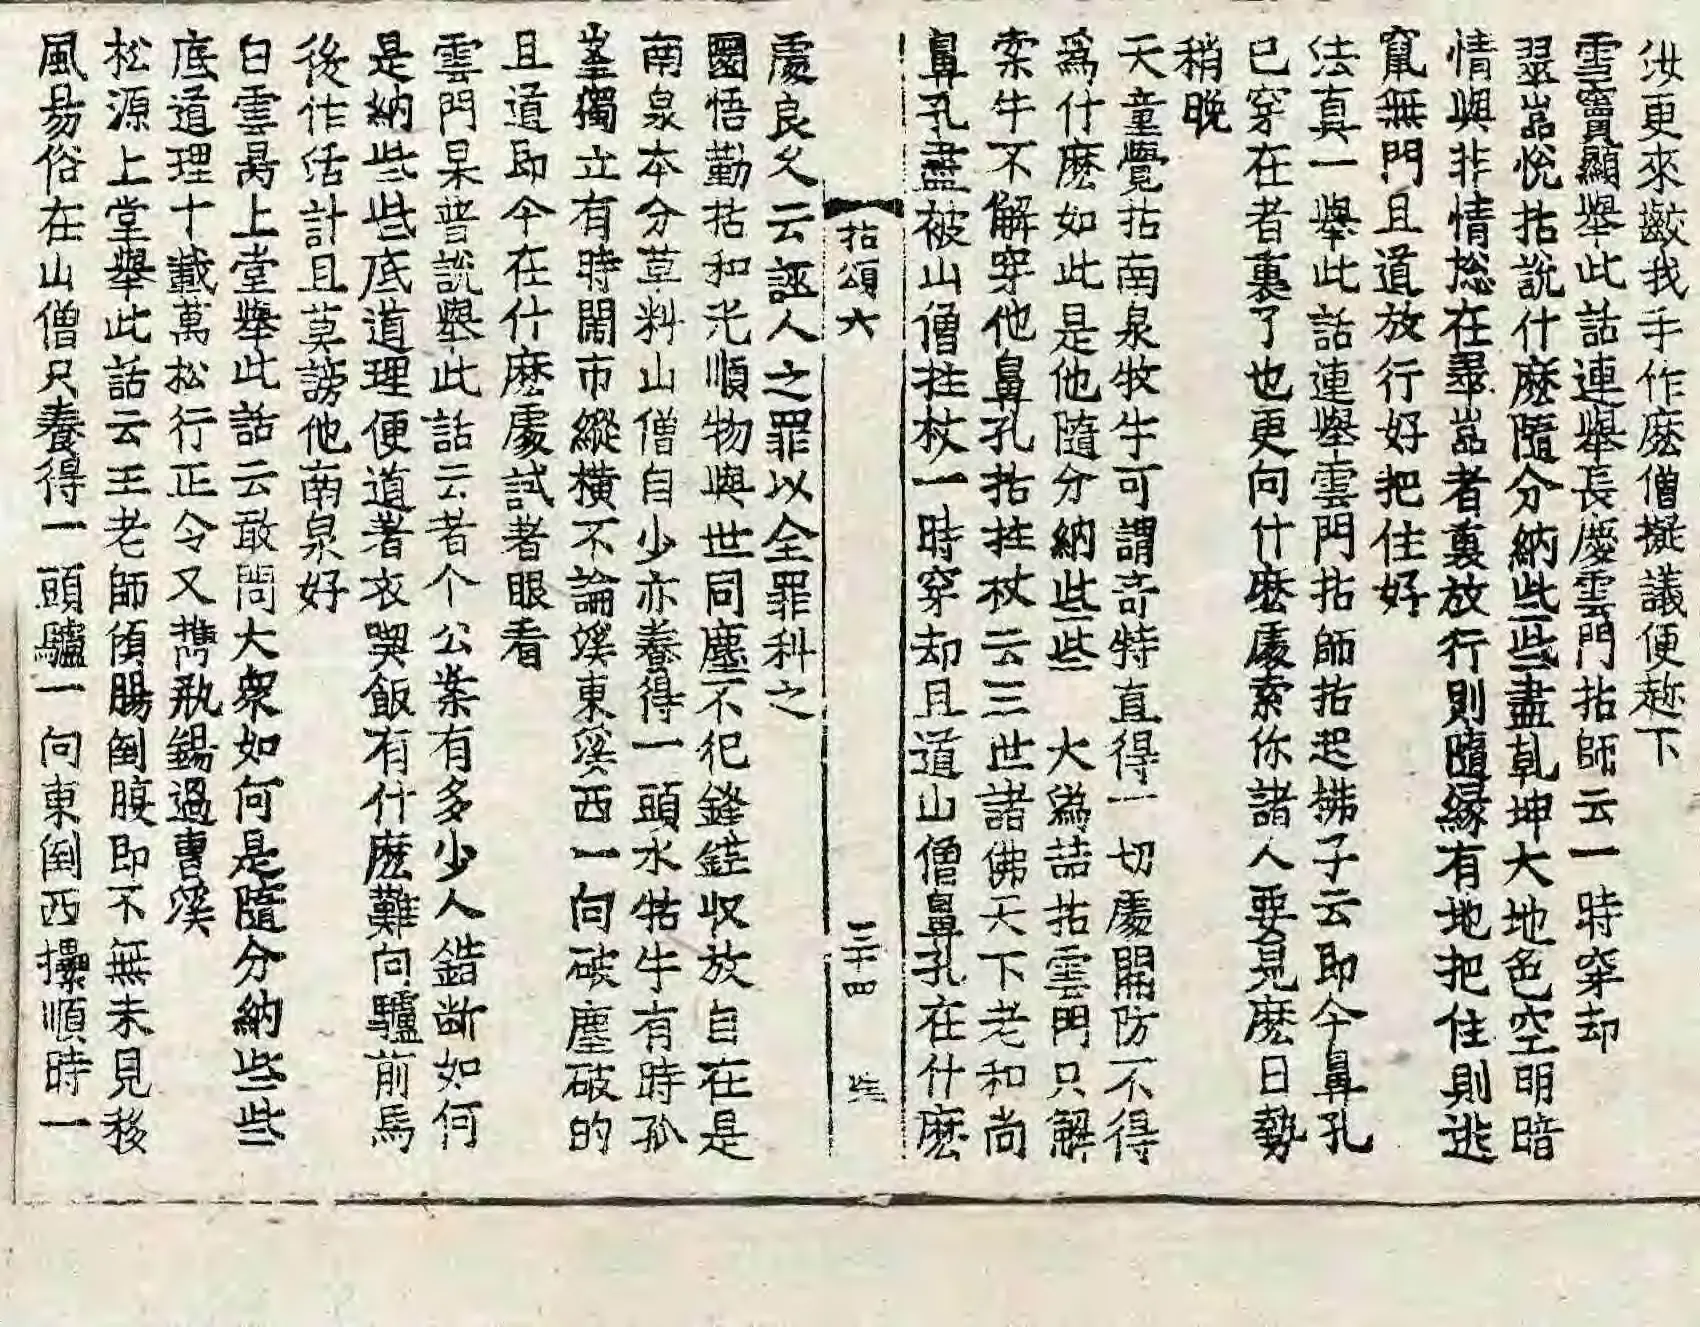 汝更來齩我手作麽僧擬議便趂下
雪竇顯擧此話連擧長慶雲門拈師云一時穿却
翠嵓悅拈說什麽隨分納些些盡乹坤大地色空明暗
情與非情捴在翠嵓者裏放行則隨緣有地把住則逃
竄無門且道放行好把住好
法真一擧此話連擧雲門拈師拈起拂子云即今鼻孔
已穿在者裏了也更向什麽處索你諸人要見麽日勢
稍晚
天童覺拈南泉牧牛可謂奇特直得一切處關防不得
爲什麽如此是他隨分納些些　大潙喆拈雲門只解
索牛不解穿他鼻孔拈拄杖云三世諸佛天下老和尚
鼻孔盡被山僧拄杖一時穿却且道山僧鼻孔在什麽
拈頌六　三十四
處良久云誣人之罪以全罪科之
圜悟勤拈和光順物與世同塵不犯鋒鋩収放自在是
南泉本分草料山僧自少亦養得一頭水牯牛有時孤
峯獨立有時鬧市縱橫不論溪東溪西一向破塵破的
且道即今在什麽處試著眼看
雲門杲普說擧此話云者个公案有多少人錯斷如何
是納些些底道理便道著衣喫飯有什麽難向驢前馬
後作活計且莫謗他南泉好
白雲昺上堂擧此話云敢問大衆如何是隨分納些些
底道理十載萬松行正令又擕瓶錫過曹溪
松源上堂擧此話云王老師傾腸倒腹即不無未見移
風易俗在山僧只養得一頭驢一向東倒西擂順時一